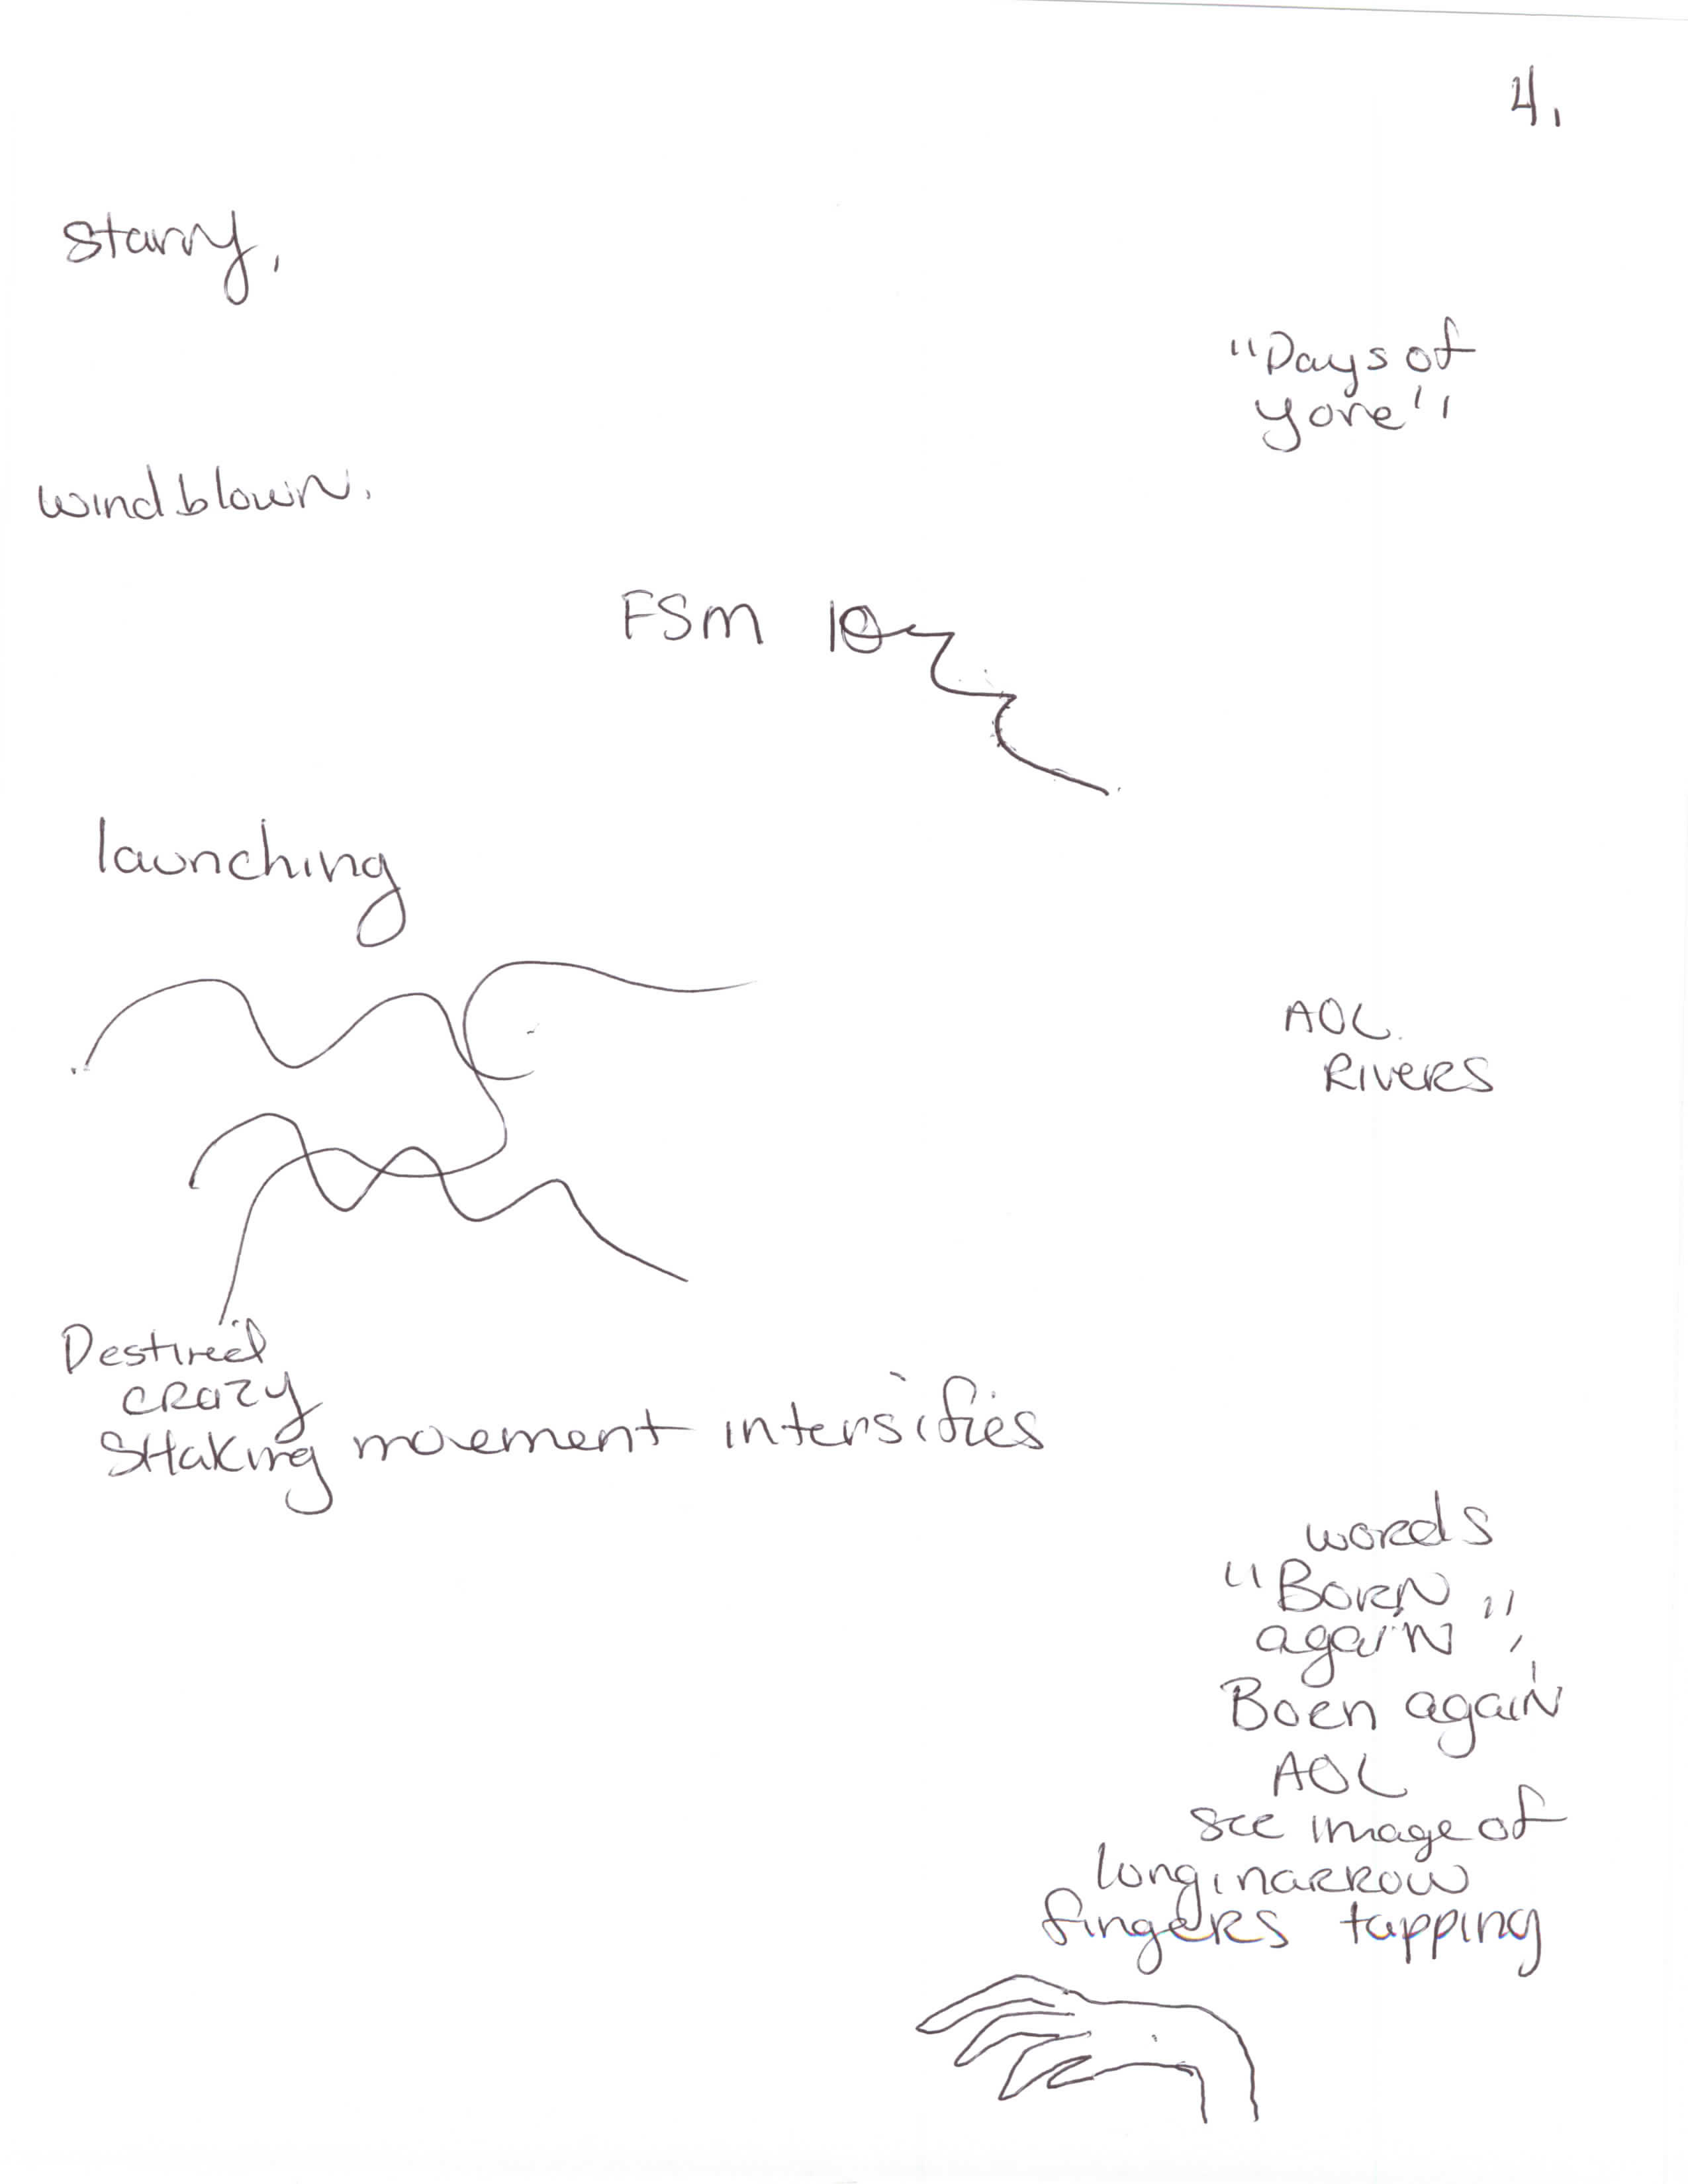 4.
starry,
"Days of
yore"
windblown.
FSM
launching
AOL
RIVERS
crazy
SHaking movement intensifies
words
"BORN
again"
Born again
AOL
see image of
long, narrow
fingers tapping